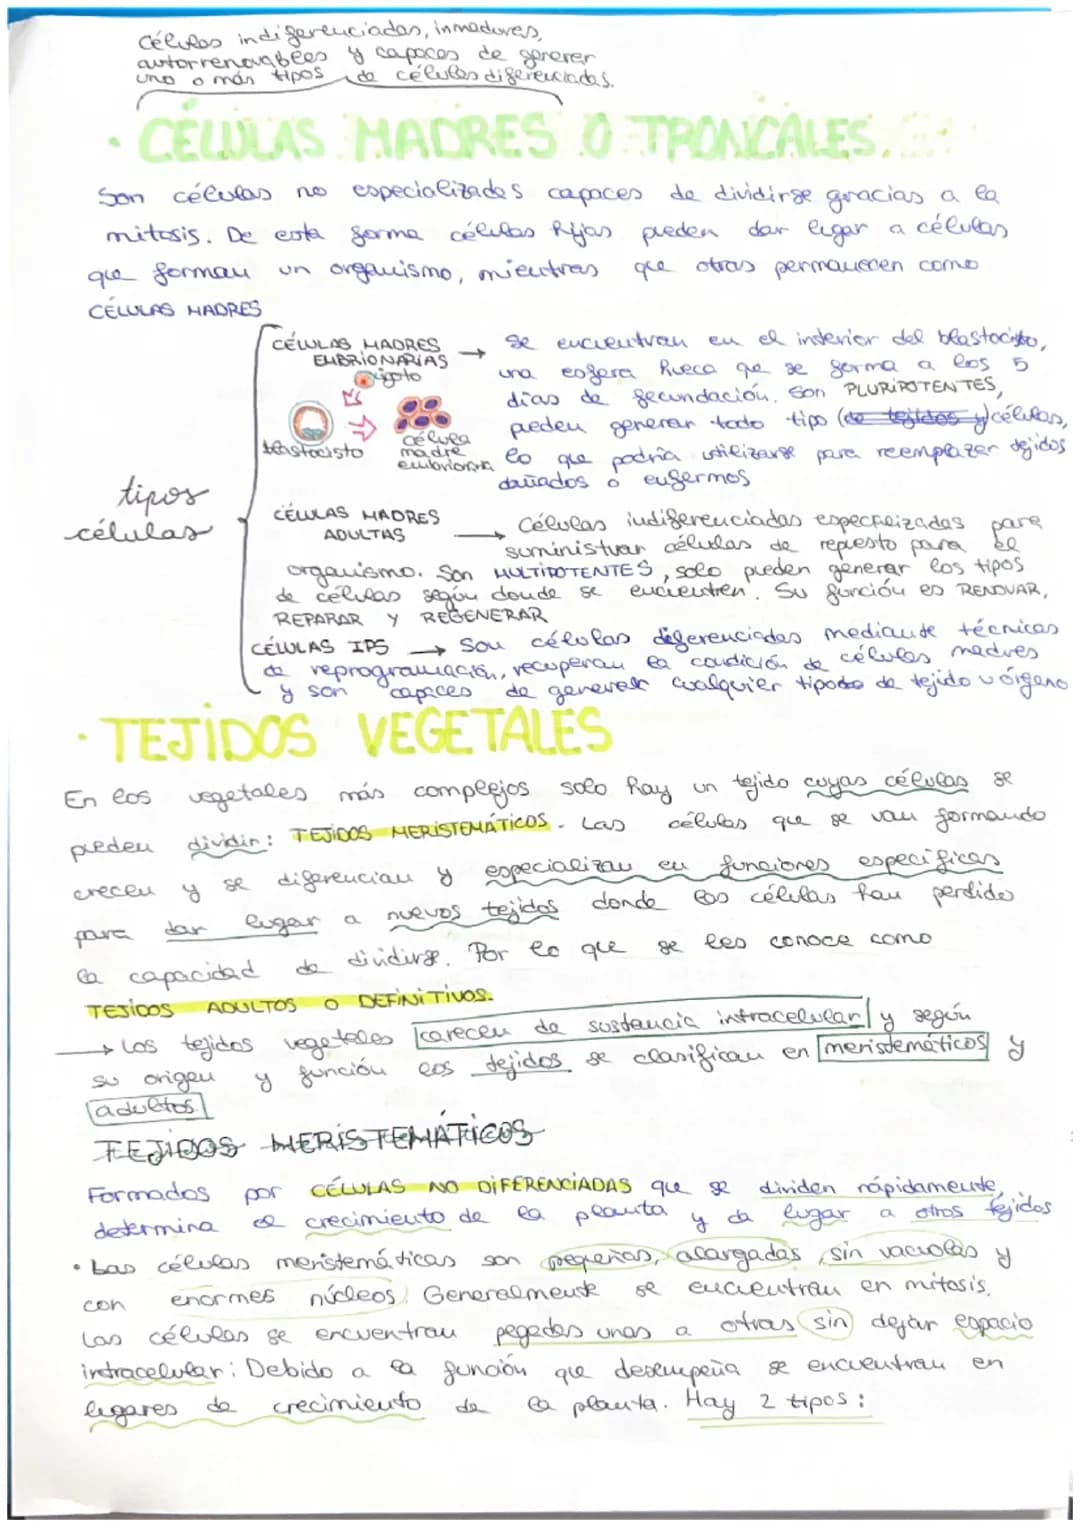 Células indiferenciadas, inmaduras,
autorrenovables y capaces de generar
uno o más tipos de células diferenciadas.
· CÉLULAS MADRES O TRONCALES
Son células no especializadas capaces de dividirse gracias a la
mitosis. De esta forma células hijas pueden dar lugar a células
que forman un organismo, mientras que otras permanecen como
CÉLULAS MADRES
tipos
células
CÉLULAS MADRES
EMBRIONARIAS
zigoto
blastocisto
célula
madre
embrionria
→ Se encuentran en el interior del blastocisto,
una esfera hueca que se forma a los 5
días de fecundación. Son PLURIPOTENTES,
pueden generar todo tipo (de tejidos y) células,
lo que podría utilizarse para reemplazar tejidos
dañados o enfermos
CÉLULAS MADRES
ADULTAS
→ Células indiferenciadas especializadas para
suministrar células de repuesto para el
organismo. Son MULTIPOTENTES, solo pueden generar los tipos
de células según donde se encuentren. Su función es RENOVAR,
REPARAR Y REGENERAR
CÉLULAS IPS → Son células diferenciadas mediante técnicas
de reprogramación, recuperan la condición de células madres
y son capaces de generar cualquier tipo de tejido u órgano
· TEJIDOS VEGETALES
En los vegetales más complejos solo hay un tejido cuyas células se
pueden dividir: TEJIDOS MERISTEMÁTICOS. Las células que se van formando
crecen y se diferencian y especializan en funciones específicas
para dar lugar a nuevos tejidos donde las células han perdido
la capacidad de dividirse. Por lo que se les conoce como
TEJIDOS ADULTOS O DEFINITIVOS.
→ Los tejidos vegetales carecen de sustancia intracelular y según
su origen y función los tejidos se clasifican en meristemáticos y
adultos.
TEJIDOS MERISTEMÁTICOS
Formados por CÉLULAS NO DIFERENCIADAS que se dividen rápidamente,
determina el crecimiento de la planta y da lugar a otros tejidos
· Las células meristemáticas son pequeñas, alargadas, sin vacuolas y
con enormes núcleos. Generalmente se encuentran en mitosis.
Las células se encuentran pegadas unas a otras sin dejar espacio
intracelular: Debido a la función que desempeña se encuentran en
lugares de crecimiento de la planta. Hay 2 tipos: